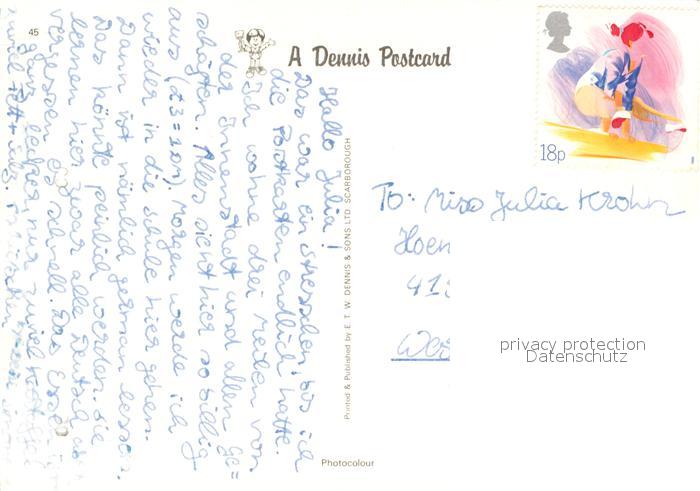 45
A Dennis Postcard
18p
Hallo Julia!
Das war ein stresschen, bis ich
die Postkarten endlich hatte.
Ich wohne drei Meilen von
der Innenstadt und allen Ge=
schäften. Alles sieht hier so billig
aus (£3=10M). Morgen werde ich
wieder in die Schule hier gehen.
Dann ist nämlich german lesson.
Das könnte peinlich werden. Sie
lernen hier zwar alle Deutsch aber
vergessen es schnell. Das Essen ist
ganz lecker, nur zuviel
zuviel Fett
Printed & Published by E. T. W. DENNIS & SONS LTD. SCARBOROUGH
To: Miss Julia Krohn
Hoen
41
privacy protection
Datenschutz
Photocolour